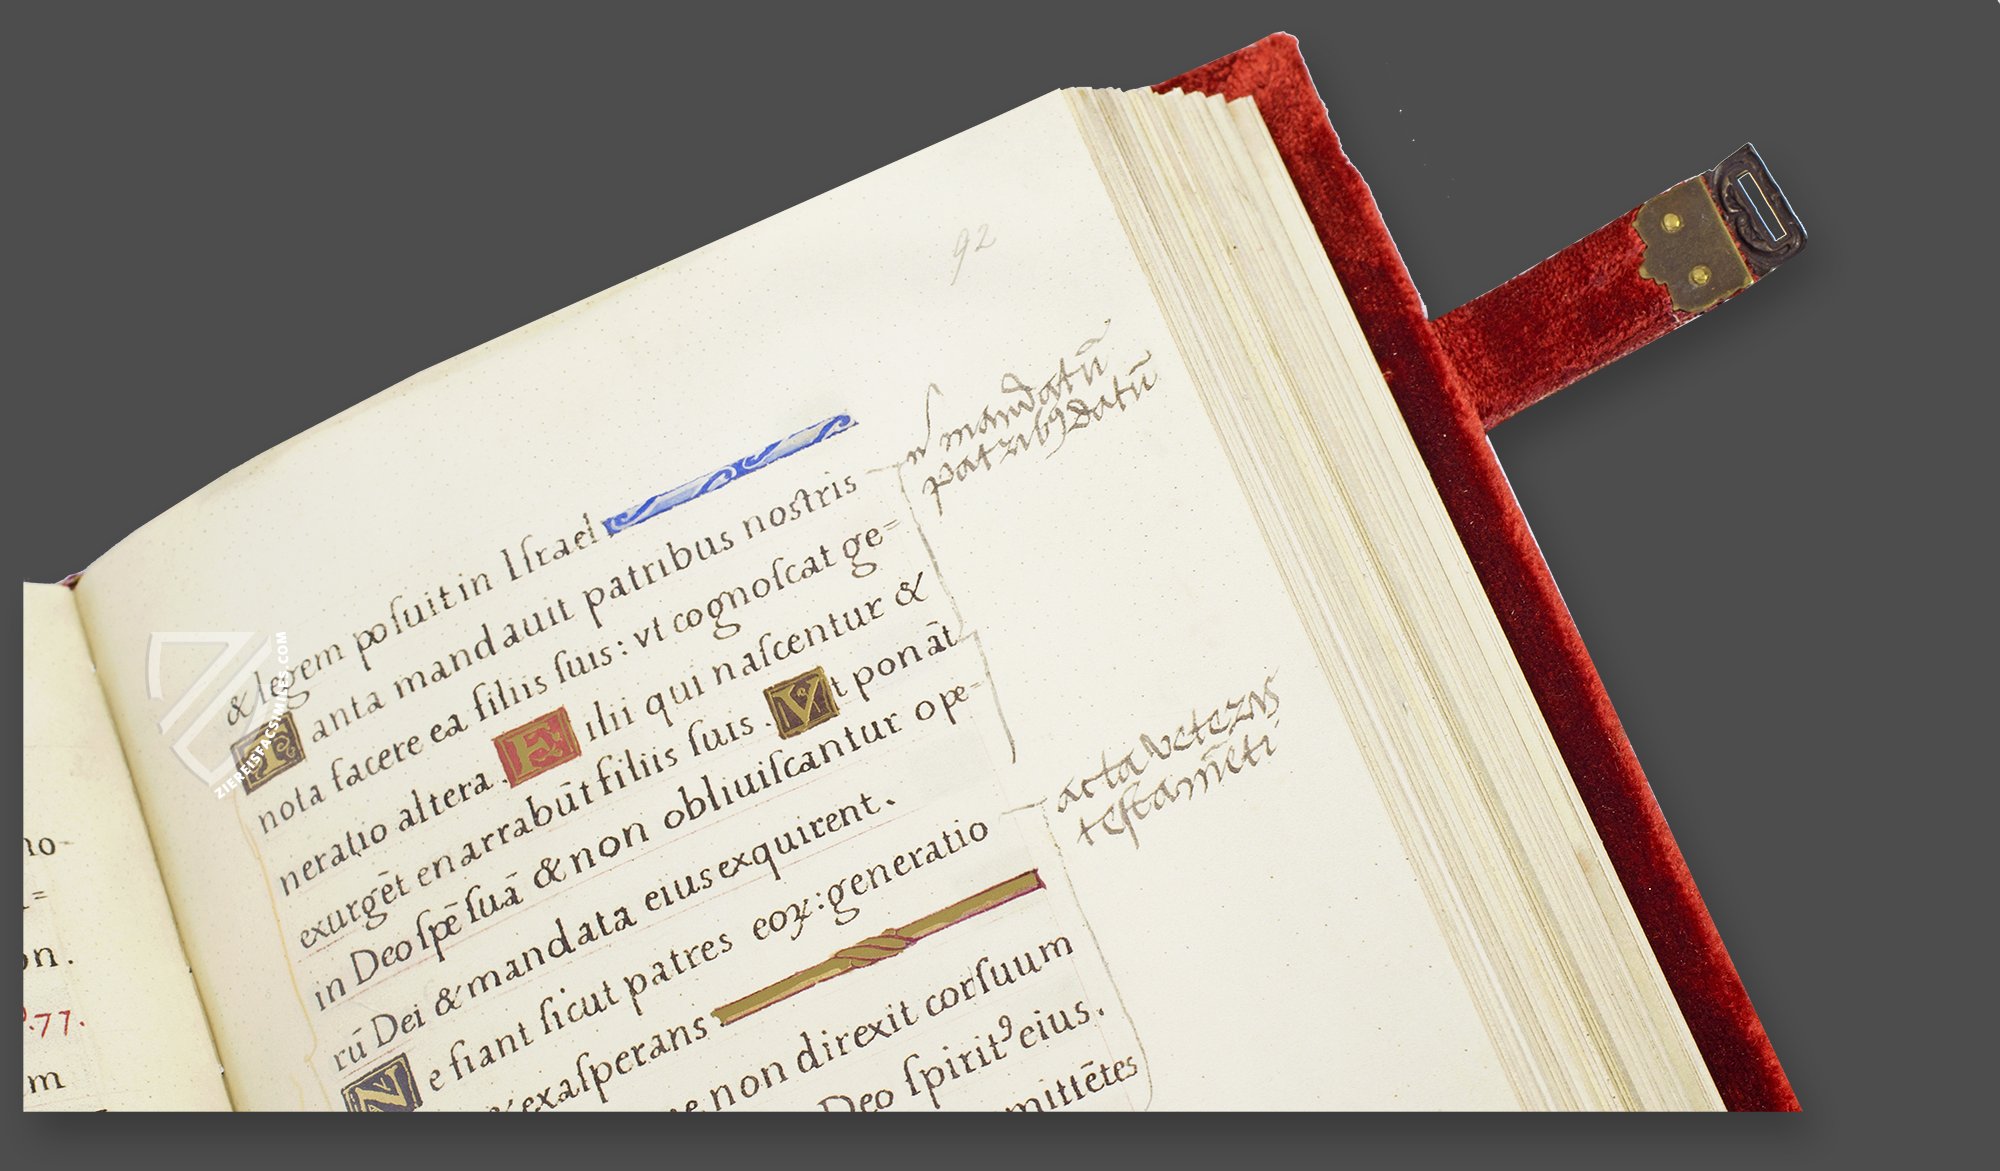 no-
=
on.
.77.
m
92
& legem poſuit in Iſrael
Tanta mandauit patribus nostris
nota facere ea filiis ſuis: vt cognoſcat ge=
neratio altera. Filii qui naſcentur &
exurgēt enarrabūt filiis ſuis. Vt ponāt
in Deo ſpē ſuā & non obliuiſcantur ope=
rū Dei & mandata eius exquirent.
Ne fiant ſicut patres eoꝝ: generatio
& exaſperans
ne non direxit cor ſuum
Deo ſpiritꝰ eius.
mittētes
mandatū
patribꝰ datū
acta veteris
teſtamēti
ZIEREISFACSIMILES.COM